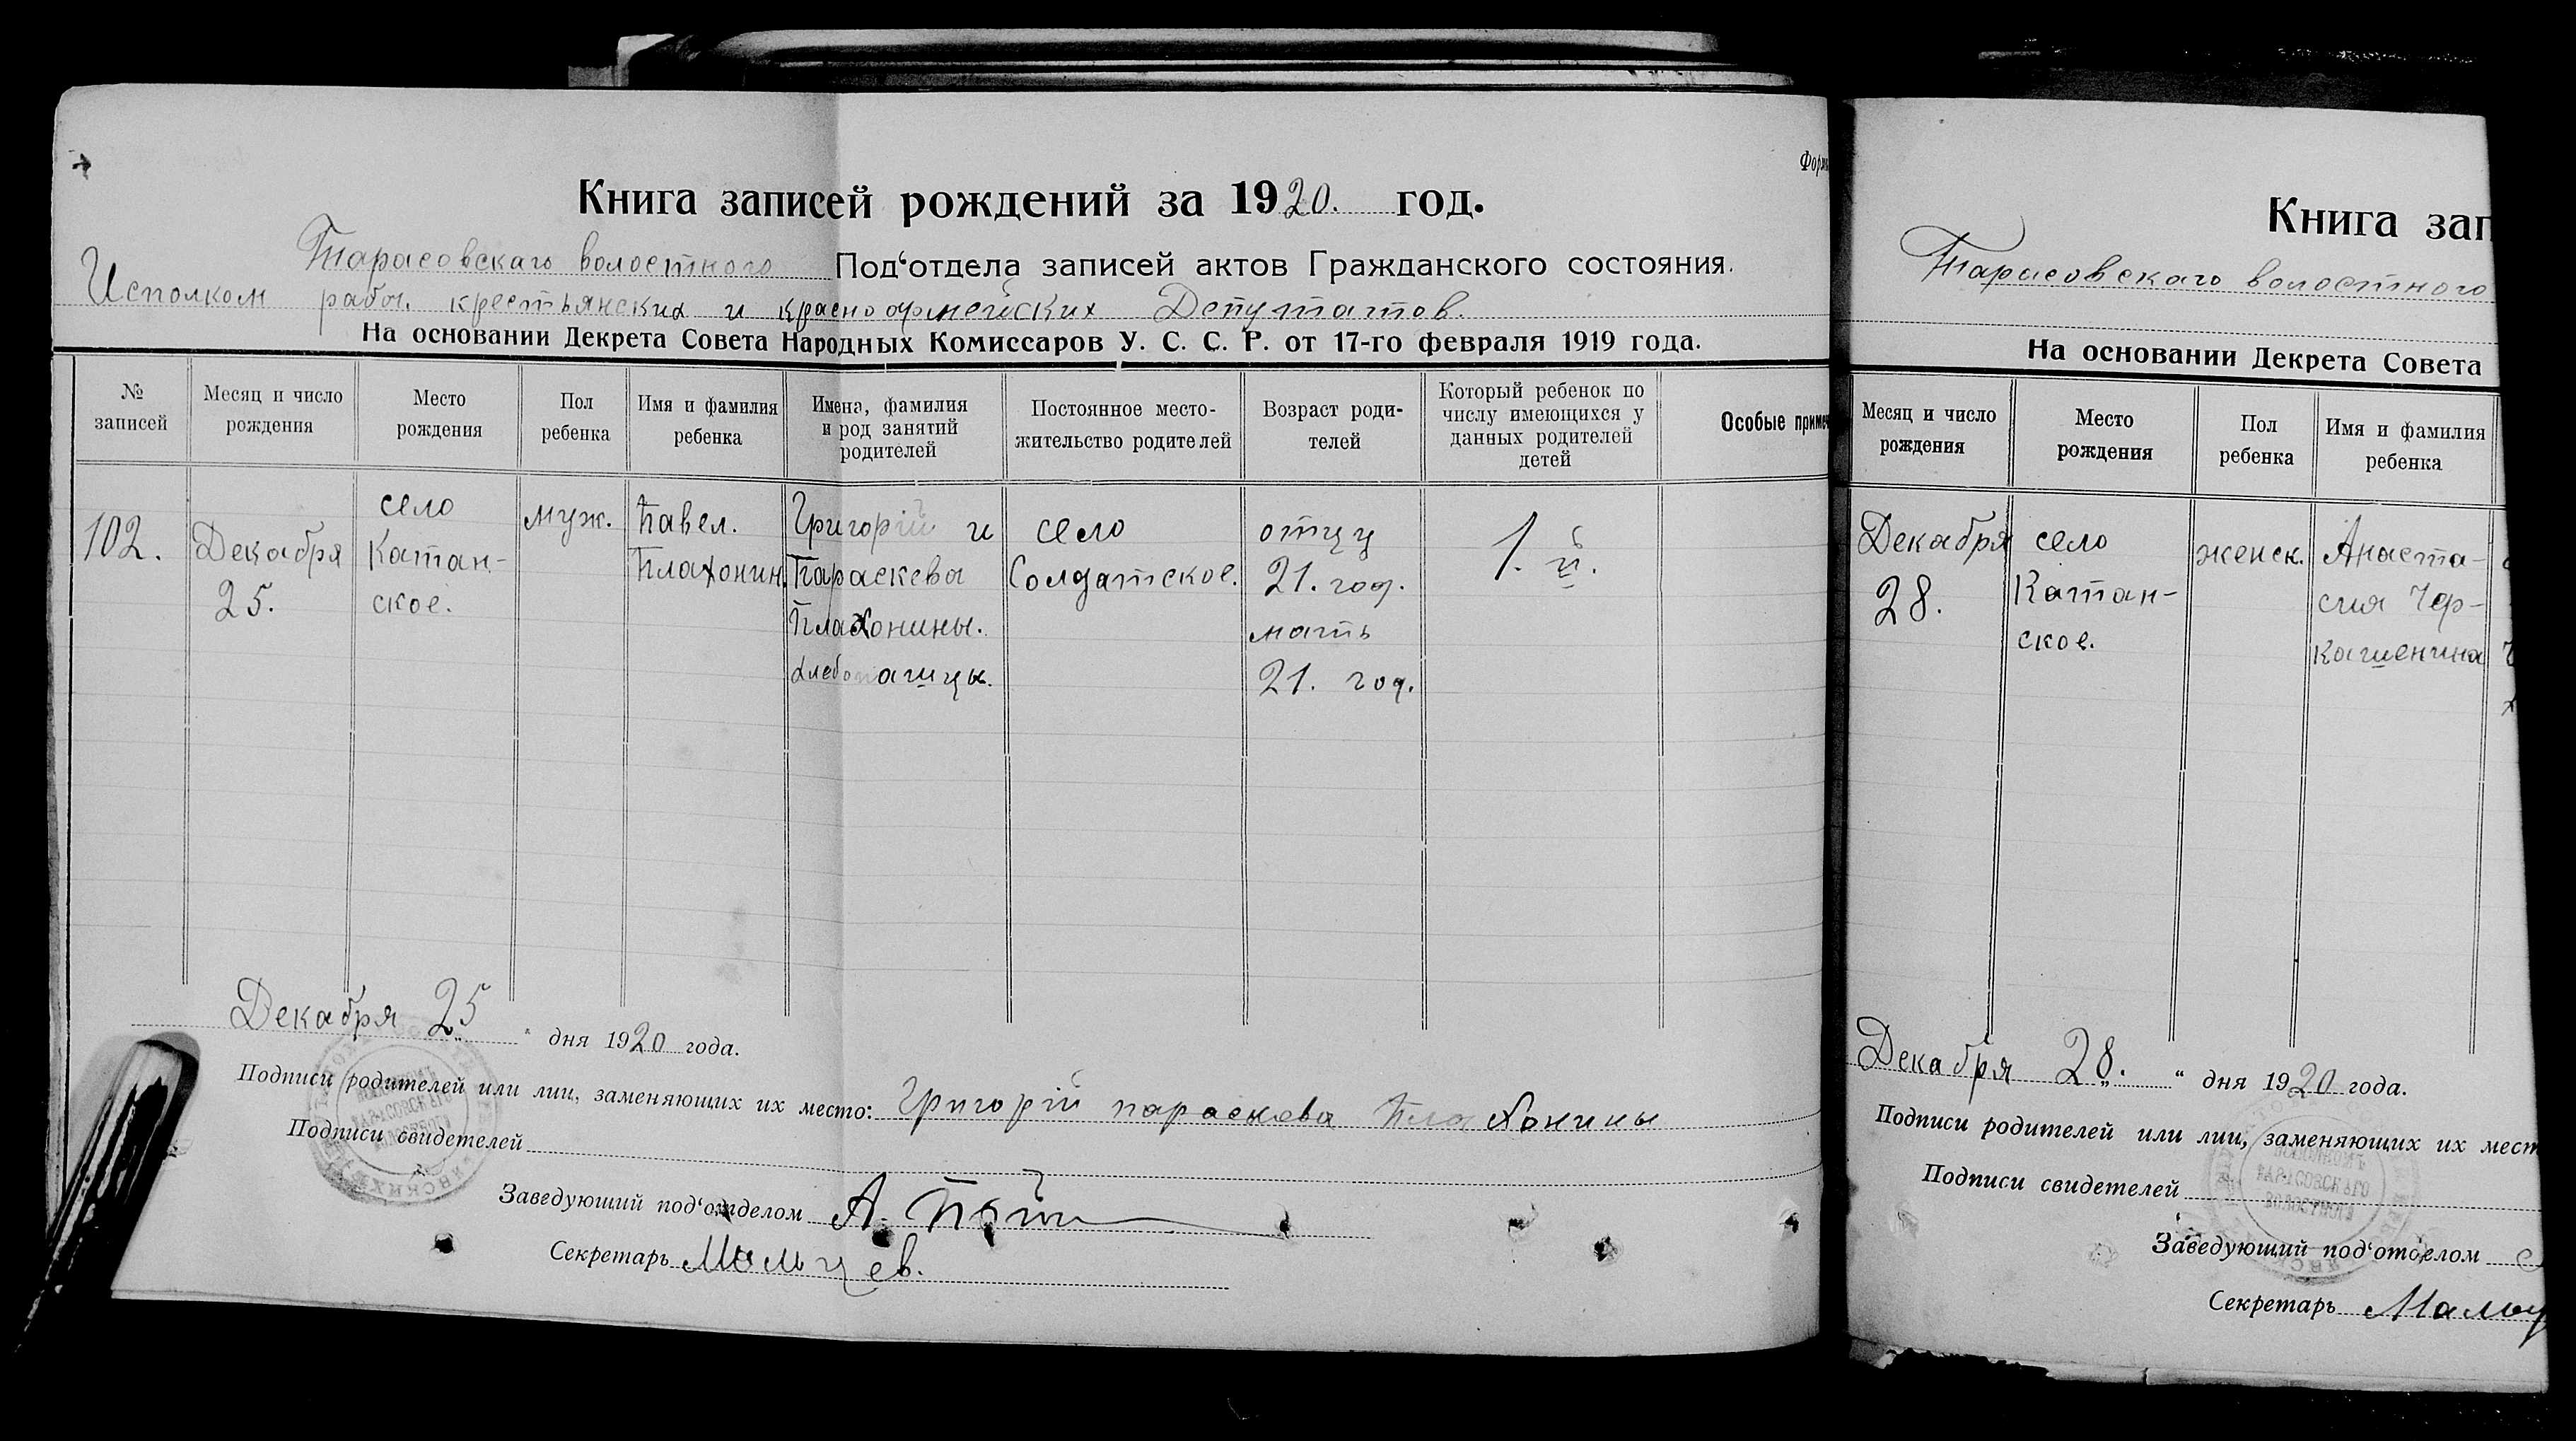 Форм
Книга записей рождений за 1920. год.
Тарасовскаго волостного Под‘отдела записей актов Гражданского состояния.
Исполком рабоч. крестьянских и красноармейских Депутатов.
На основании Декрета Совета Народных Комиссаров У. С. С. Р. от 17-го февраля 1919 года.
№ записей
Месяц и число рождения
Место рождения
Пол ребенка
Имя и фамилия ребенка
Имена, фамилия и род занятий родителей
Постоянное место-жительство родителей
Возраст роди-телей
Который ребенок по числу имеющихся у данных родителей детей
Особые примеч
102.
Декабря
25.
село
Катан-
ское.
муж.
Павел.
Плахонин.
Григорій и
Параскева
Плахонины.
хлебопашцы.
село
Солдатское.
отцу
21. год.
мать
21. год.
1. й.
Декабря 25 " дня 1920 года.
Подписи родителей или лиц, заменяющих их место: Григорій параскева Плахонины
Подписи свидетелей
Заведующий под‘отделом А.
Секретарь
Книга зап
Тарасовскаго волостного
На основании Декрета Совета
Месяц и число рождения
Место рождения
Пол ребенка
Имя и фамилия ребенка
Декабря
28.
село
Катан-
ское.
женск.
Анаста-
сия Чер-
кашенина
Декабря 28. " дня 1920 года.
Подписи родителей или лиц, заменяющих их мест
Подписи свидетелей
Заведующий под‘отделом
Секретарь